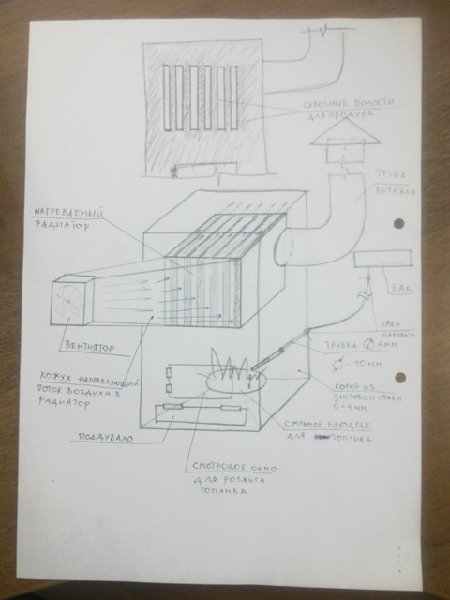 СКВОЗНЫЕ ПОЛОСТИ
ДЛЯ ПРОДУВА
ТРУБА
ВЫТЯЖКА
НАГРЕВАЕМЫЙ
РАДИАТОР
БАК
КРАН
ВЕНТИЯТОР
ТРУБКА ∅ 4ММ
∅ -10ММ
КОЖУХ НАПРАВЛЯЮЩИЙ
ПОТОК ВОЗДУХА В
РАДИАТОР
КОРОБ ИЗ
ЛИСТОВОЙ СТАЛИ
6=4ММ
СТАЛЬНОЕ БЛЮДЦЕ
ДЛЯ ТОПЛИВА
ПОДДУВАЛО
СМОТРОВОЕ ОКНО
ДЛЯ РОЗЖИГА
ТОПЛИВА